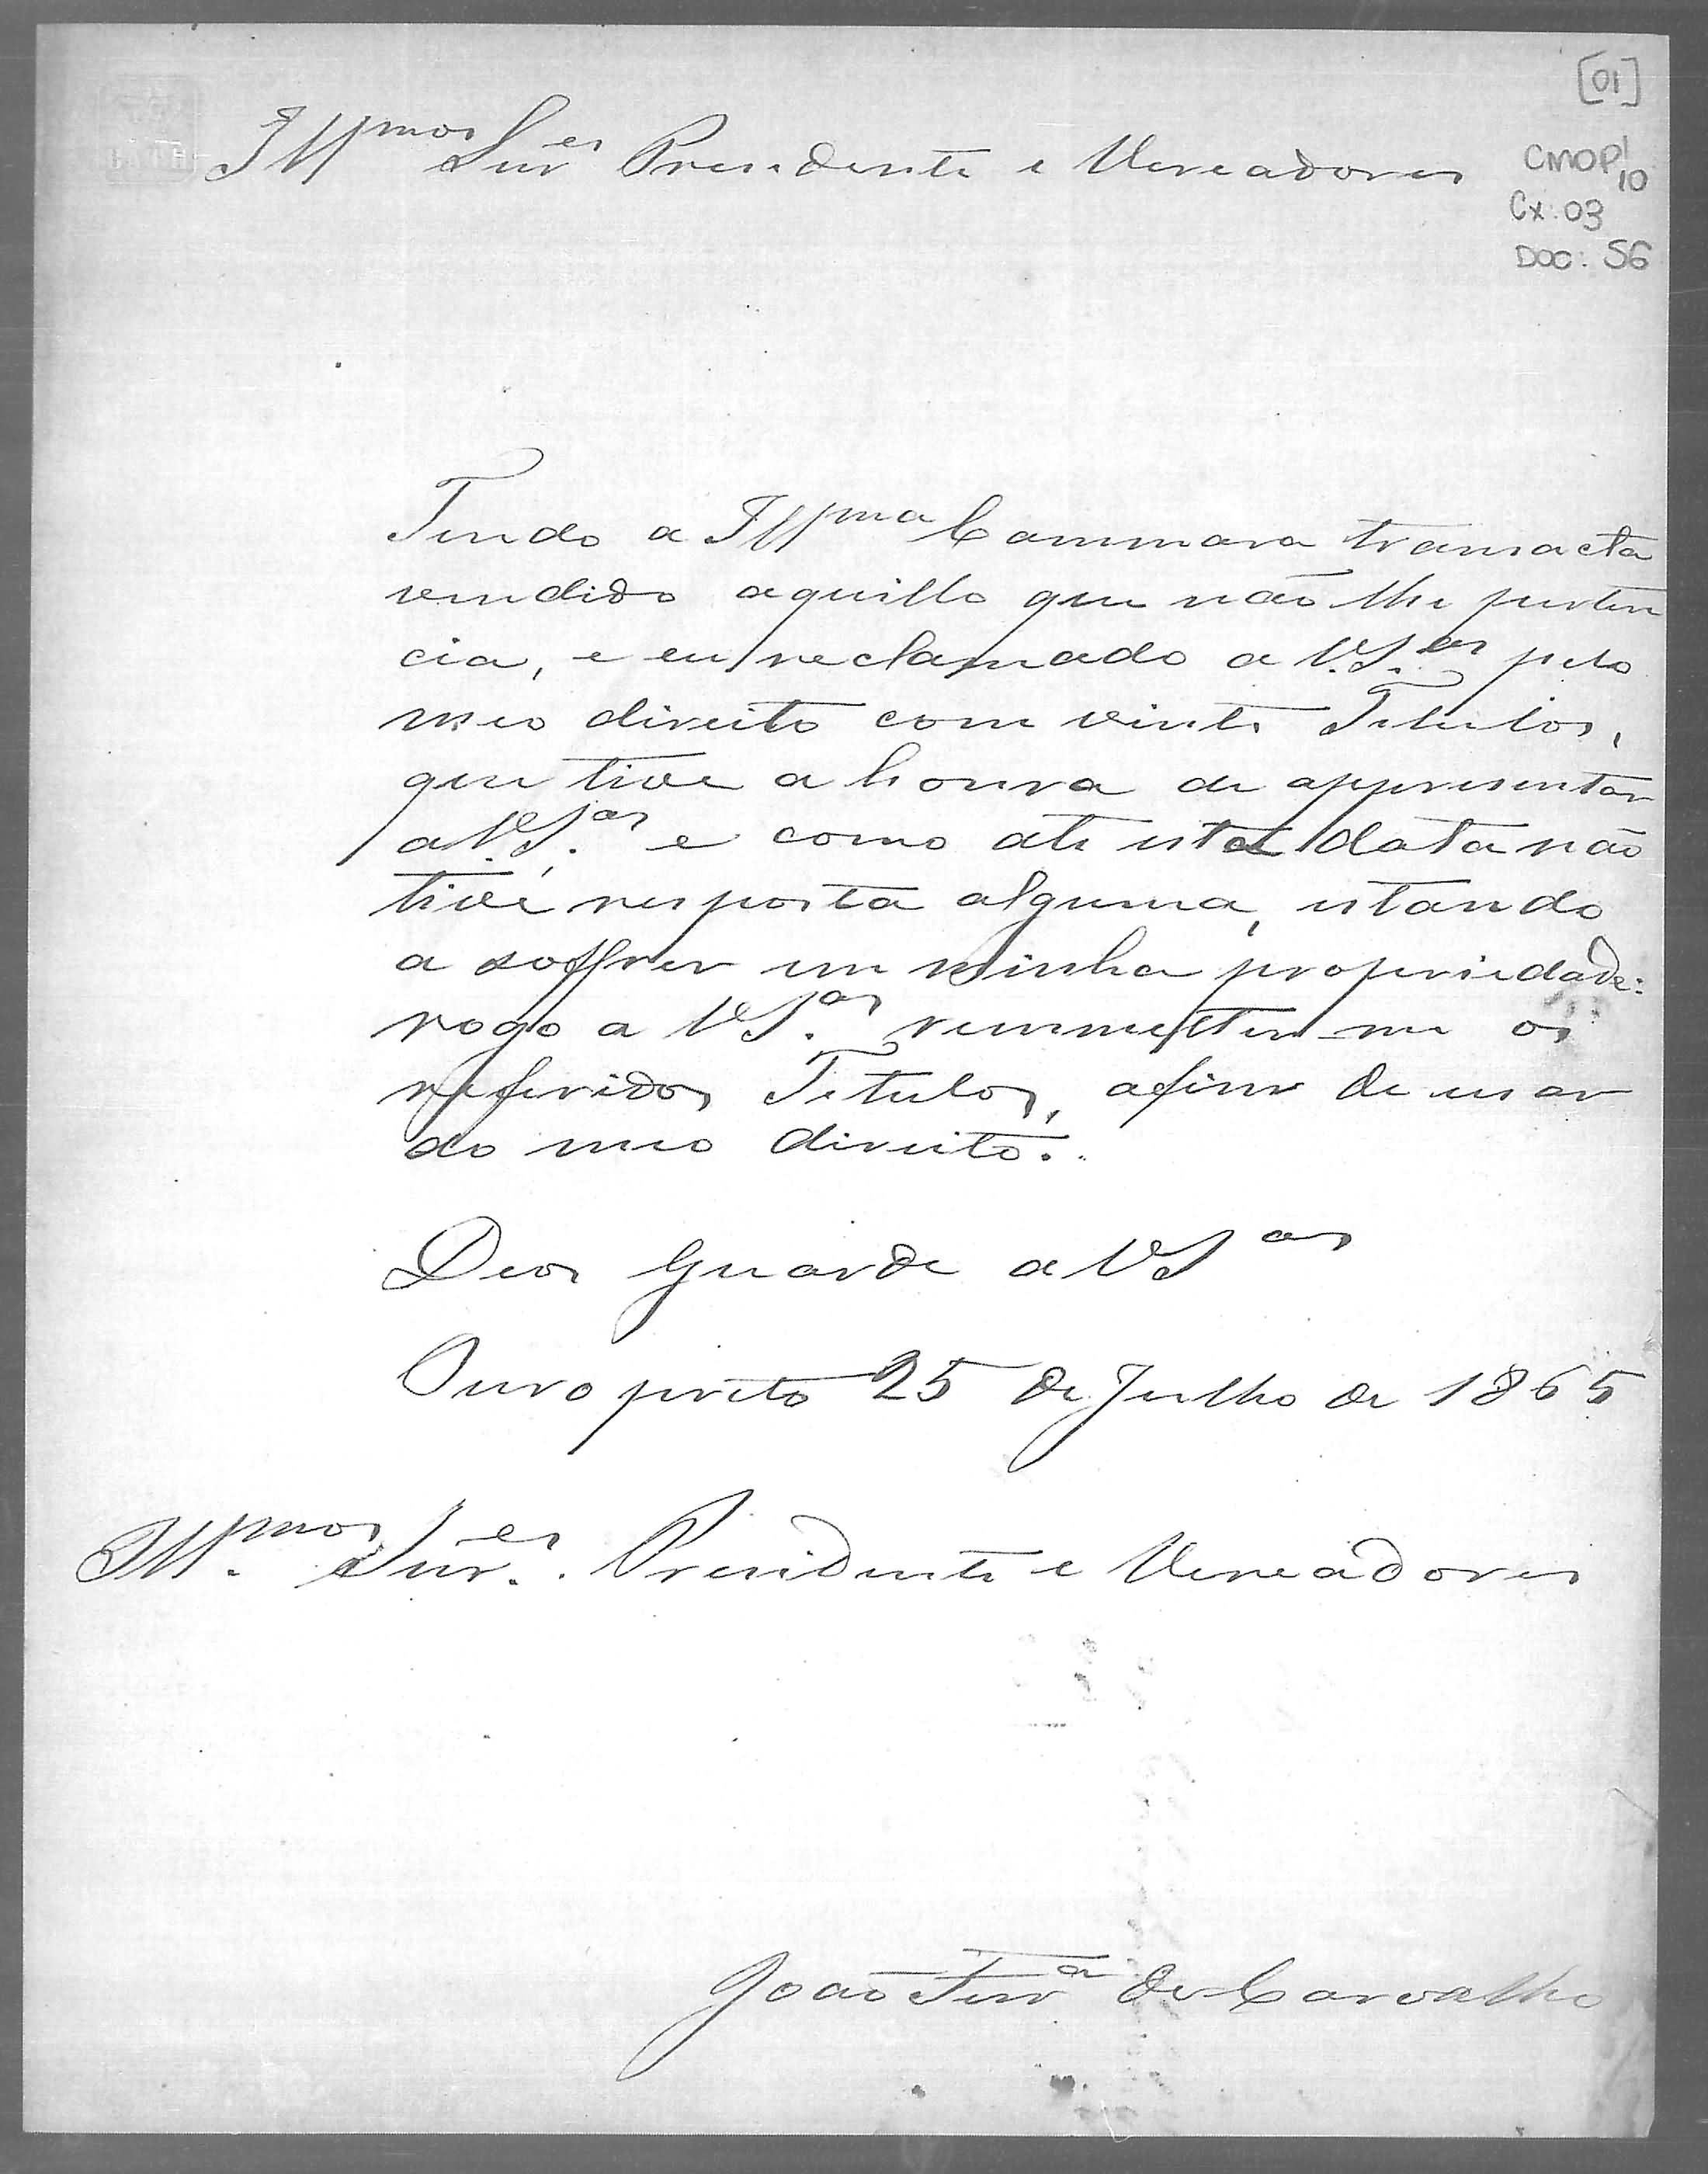 [01]
CMOP 1/10
Cx: 03
DOC: 56
Illmos Snres Presidente e Vereadores
Tendo a Illma Cammara transacta
vendido aquillo que não lhe perten
cia, e eu reclamado a V.S.as pelo
meo direito com vinte Titulos,
que tive a honra de appresentar
a V.S.as e como até esta data não
tive resposta alguma, estando
a soffrer em minha propriedade:
rogo a VS.as remmetter-me os
referidos Titulos, afim de usar
do meo direito.
Deos Guarde a VSas
Ouro preto 25 de Julho de 1865
Ill.mos Snr.es Presidente e Vereadores
João Ferra de Carvalho